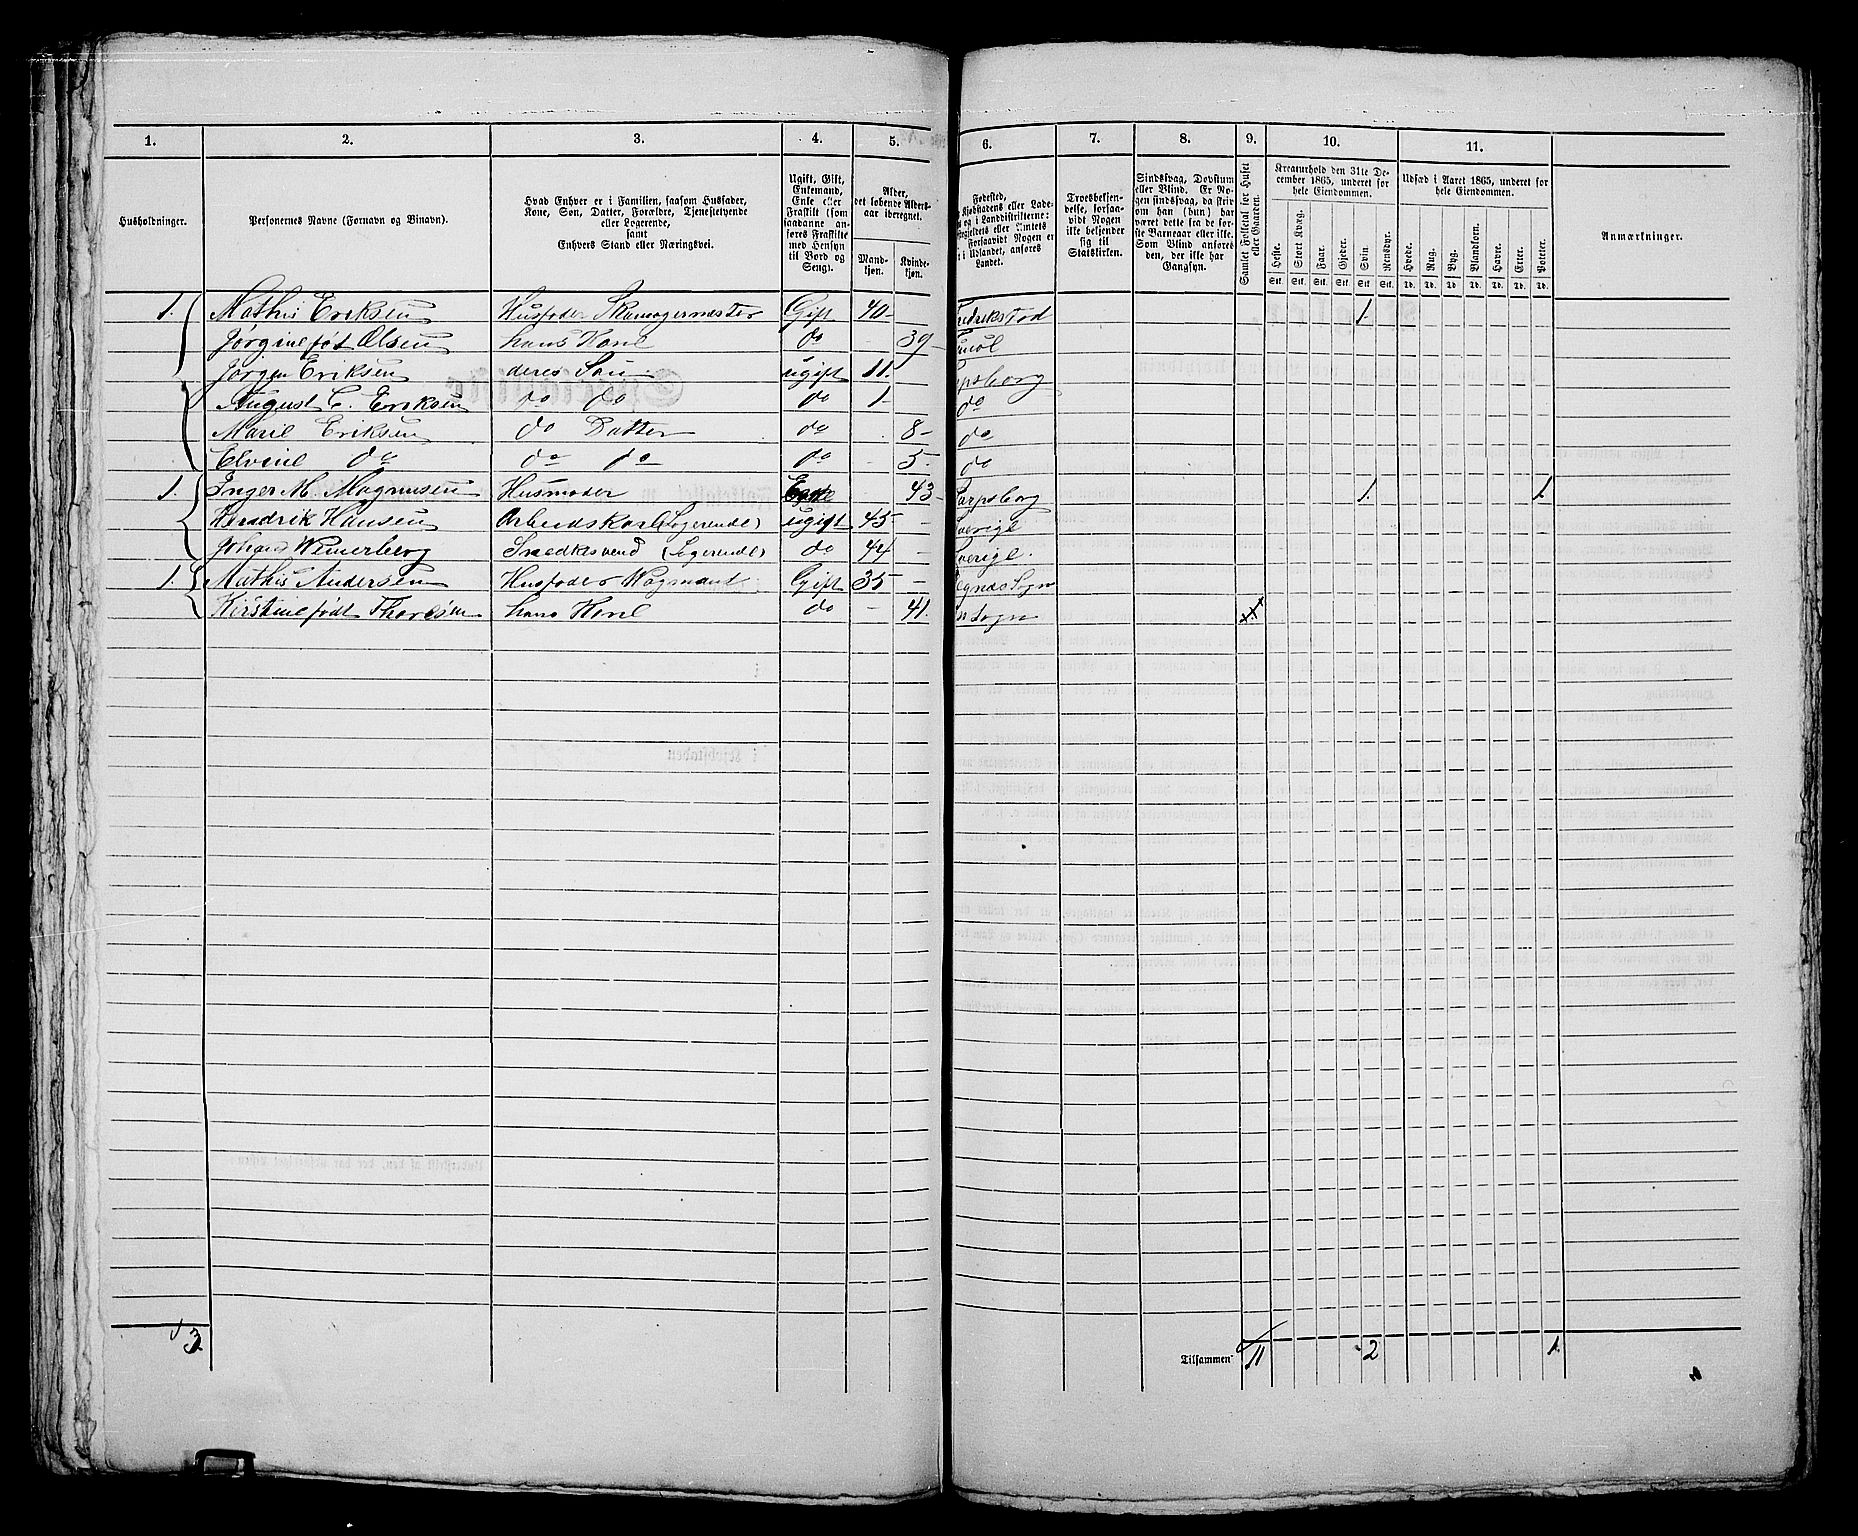 1. 2. 3. 4. 5. 6. 7. 8. 9. 10. 11.
Husholdninger.
Personernes Navne (Fornavn og Binavn).
Hvad Enhver er i Familien, saasom Husfader, Kone, Søn, Datter, Forældre, Tjenestetyende eller Logerende, samt Enhvers Stand eller Næringsvei.
Ugift, Gift, Enkemand, Enke eller Fraskilt (som saadanne anføres Fraskilte med Hensyn til Bord og Seng).
Alder, det løbende Aldersaar iberegnet.
Mandkjøn. Kvindekjøn.
Fødested,
Kjøbstadens eller Lade-
og i Landdistrikterne:
stegjeldets eller Amtets
Forsaavidt Nogen er
i Udlandet, anføres
Landet.
Troesbekjendelse, forsaavidt Nogen ikke bekjender sig til Statskirken.
Sindssvag, Døvstum eller Blind. Er Nogen sindssvag, da skriv om han (hun) har været dette fra de første Barneaar eller ikke. Som Blind anføres den, der ikke har Gangsyn.
Samlet Folketal for Huset eller Gaarden.
Kreaturhold den 31te December 1865, underet for hele Eiendommen.
Heste. Stort Kvæg. Faar. Gjeder. Svin. Rensdyr.
Stk. Stk. Stk. Stk. Stk. Stk.
Udsæd i Aaret 1865, underet for hele Eiendommen.
Hvede. Rug. Byg. Blandkorn. Havre. Erter. Poteter.
Td. Td. Td. Td. Td. Td. Td.
Anmærkninger.
1. Mathis Eriksen Husfader Skomagermester Gift 40- redrikstad 1.
Jørgine føt Olsen hans Kone do - 39-
Jørgen Eriksen deres Søn ugift 11. - rpsborg
August C. Eriksen do do do 1- - do
Marie Eriksen do Datter do - 8- do
Elvine do do do do - 5. do
1. Inger M. Magnusen Husmoder Enke 43- Sarpsborg 1. 1.
Hendrik Hansen Arbeidskarl (Logerende) ugift 45- - Sverige
Johan Wennerberg Snedkesvend (Logerende) do 44 - Sverige.
1. Mathis Andersen Husfader Wogmand Gift 35- - Sogn
Kirstine født Thoresen hans Kone do - 41. Sogn
3. Tilsammen 11 2 1.